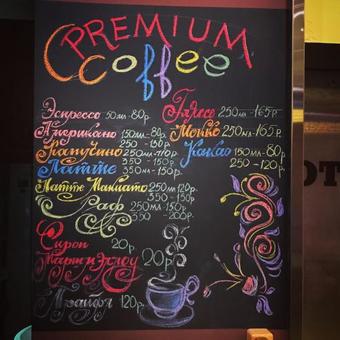 PREMIUM
Coffee
Эспрессо 50мл-80р.
Американо 150мл-80р.
250 - 130р.
Капучино 250мл-110р.
350-150р.
Латте 350мл-150р.
Латте Макиато 250мл 120р.
350-150р.
Раф 250-150р.
350-200р.
Сироп 20р.
Маршмэллоу 20р.
120р.
Глясе 250мл-165р.
Мокко 250мл-165р.
Какао 150мл-80р.
250-120р.